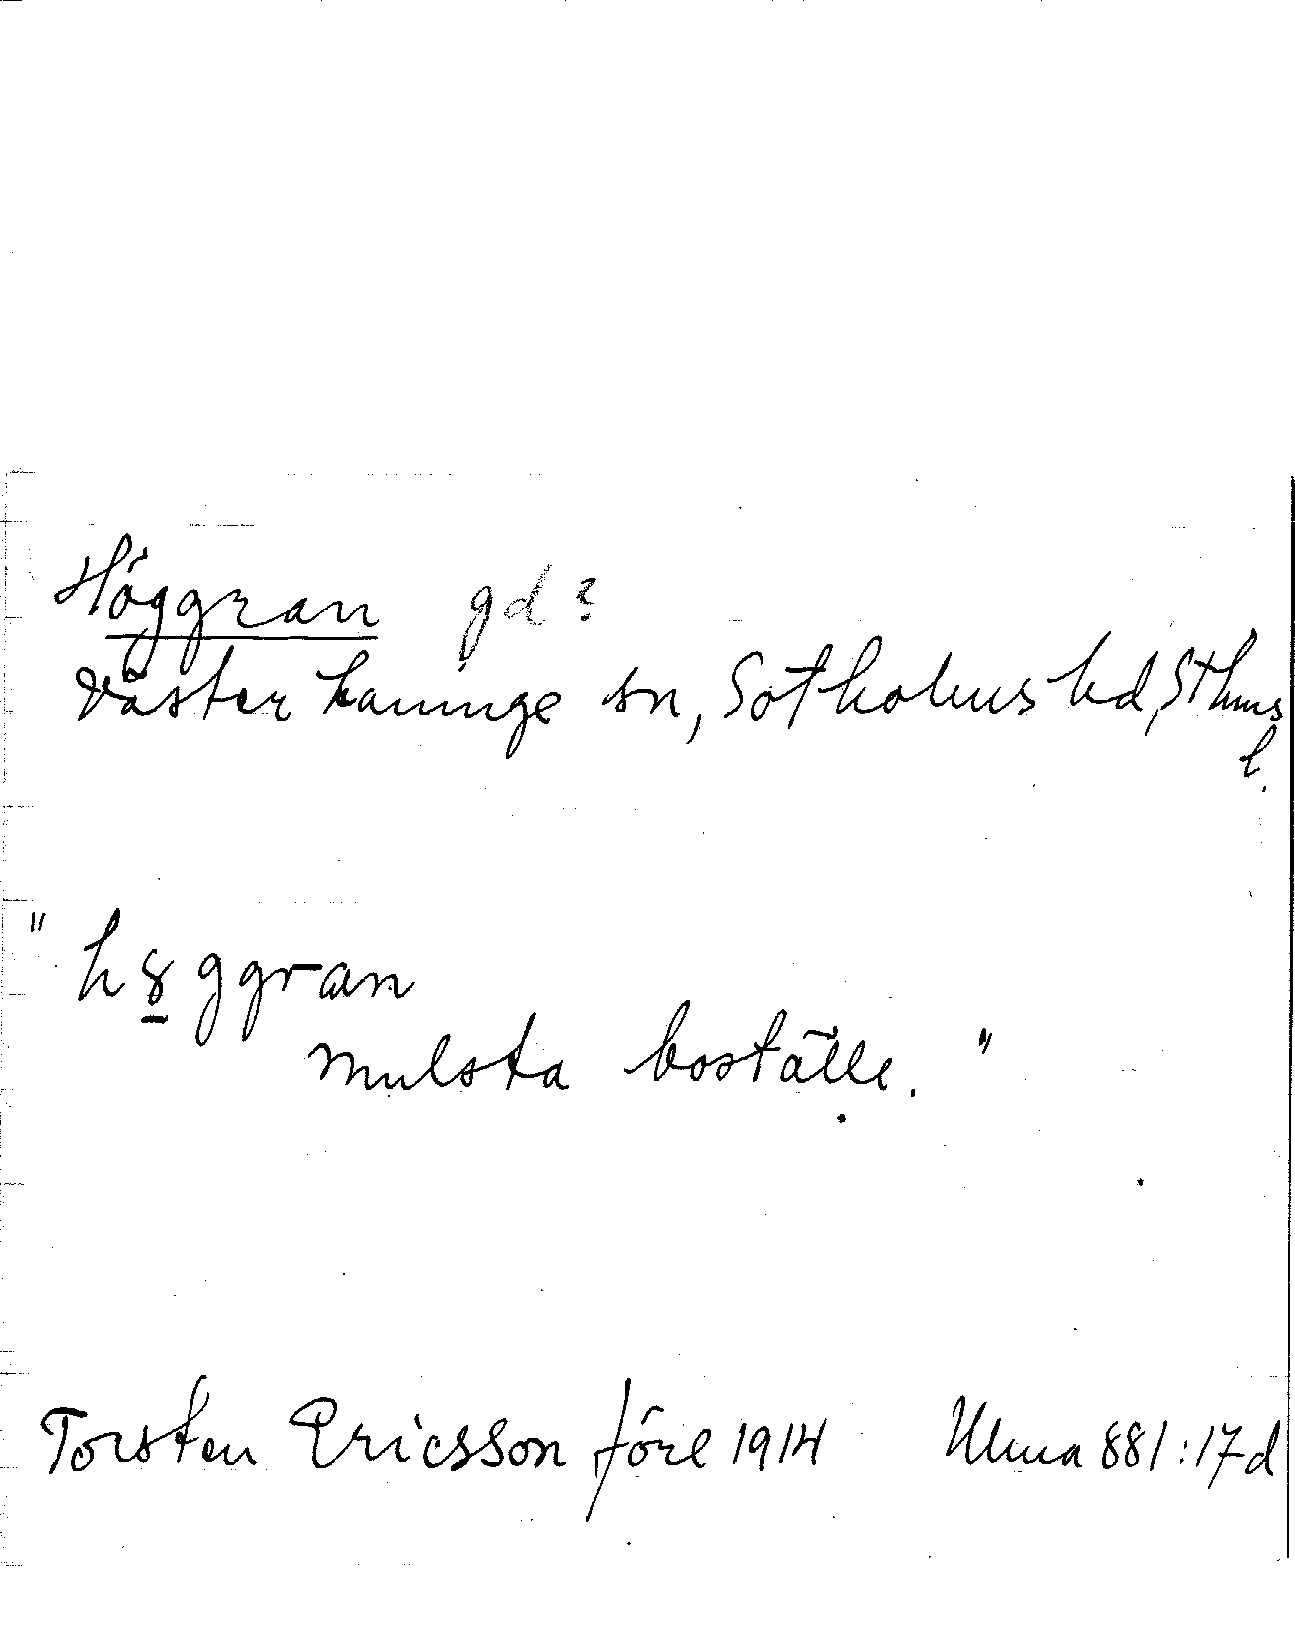 Höggran gd?
Västerhaninge sn, Sotholms hd, Sthms
l.
"h8ggran
mulsta boställe."
Torsten Ericsson före 1914 Ulma 881:17d